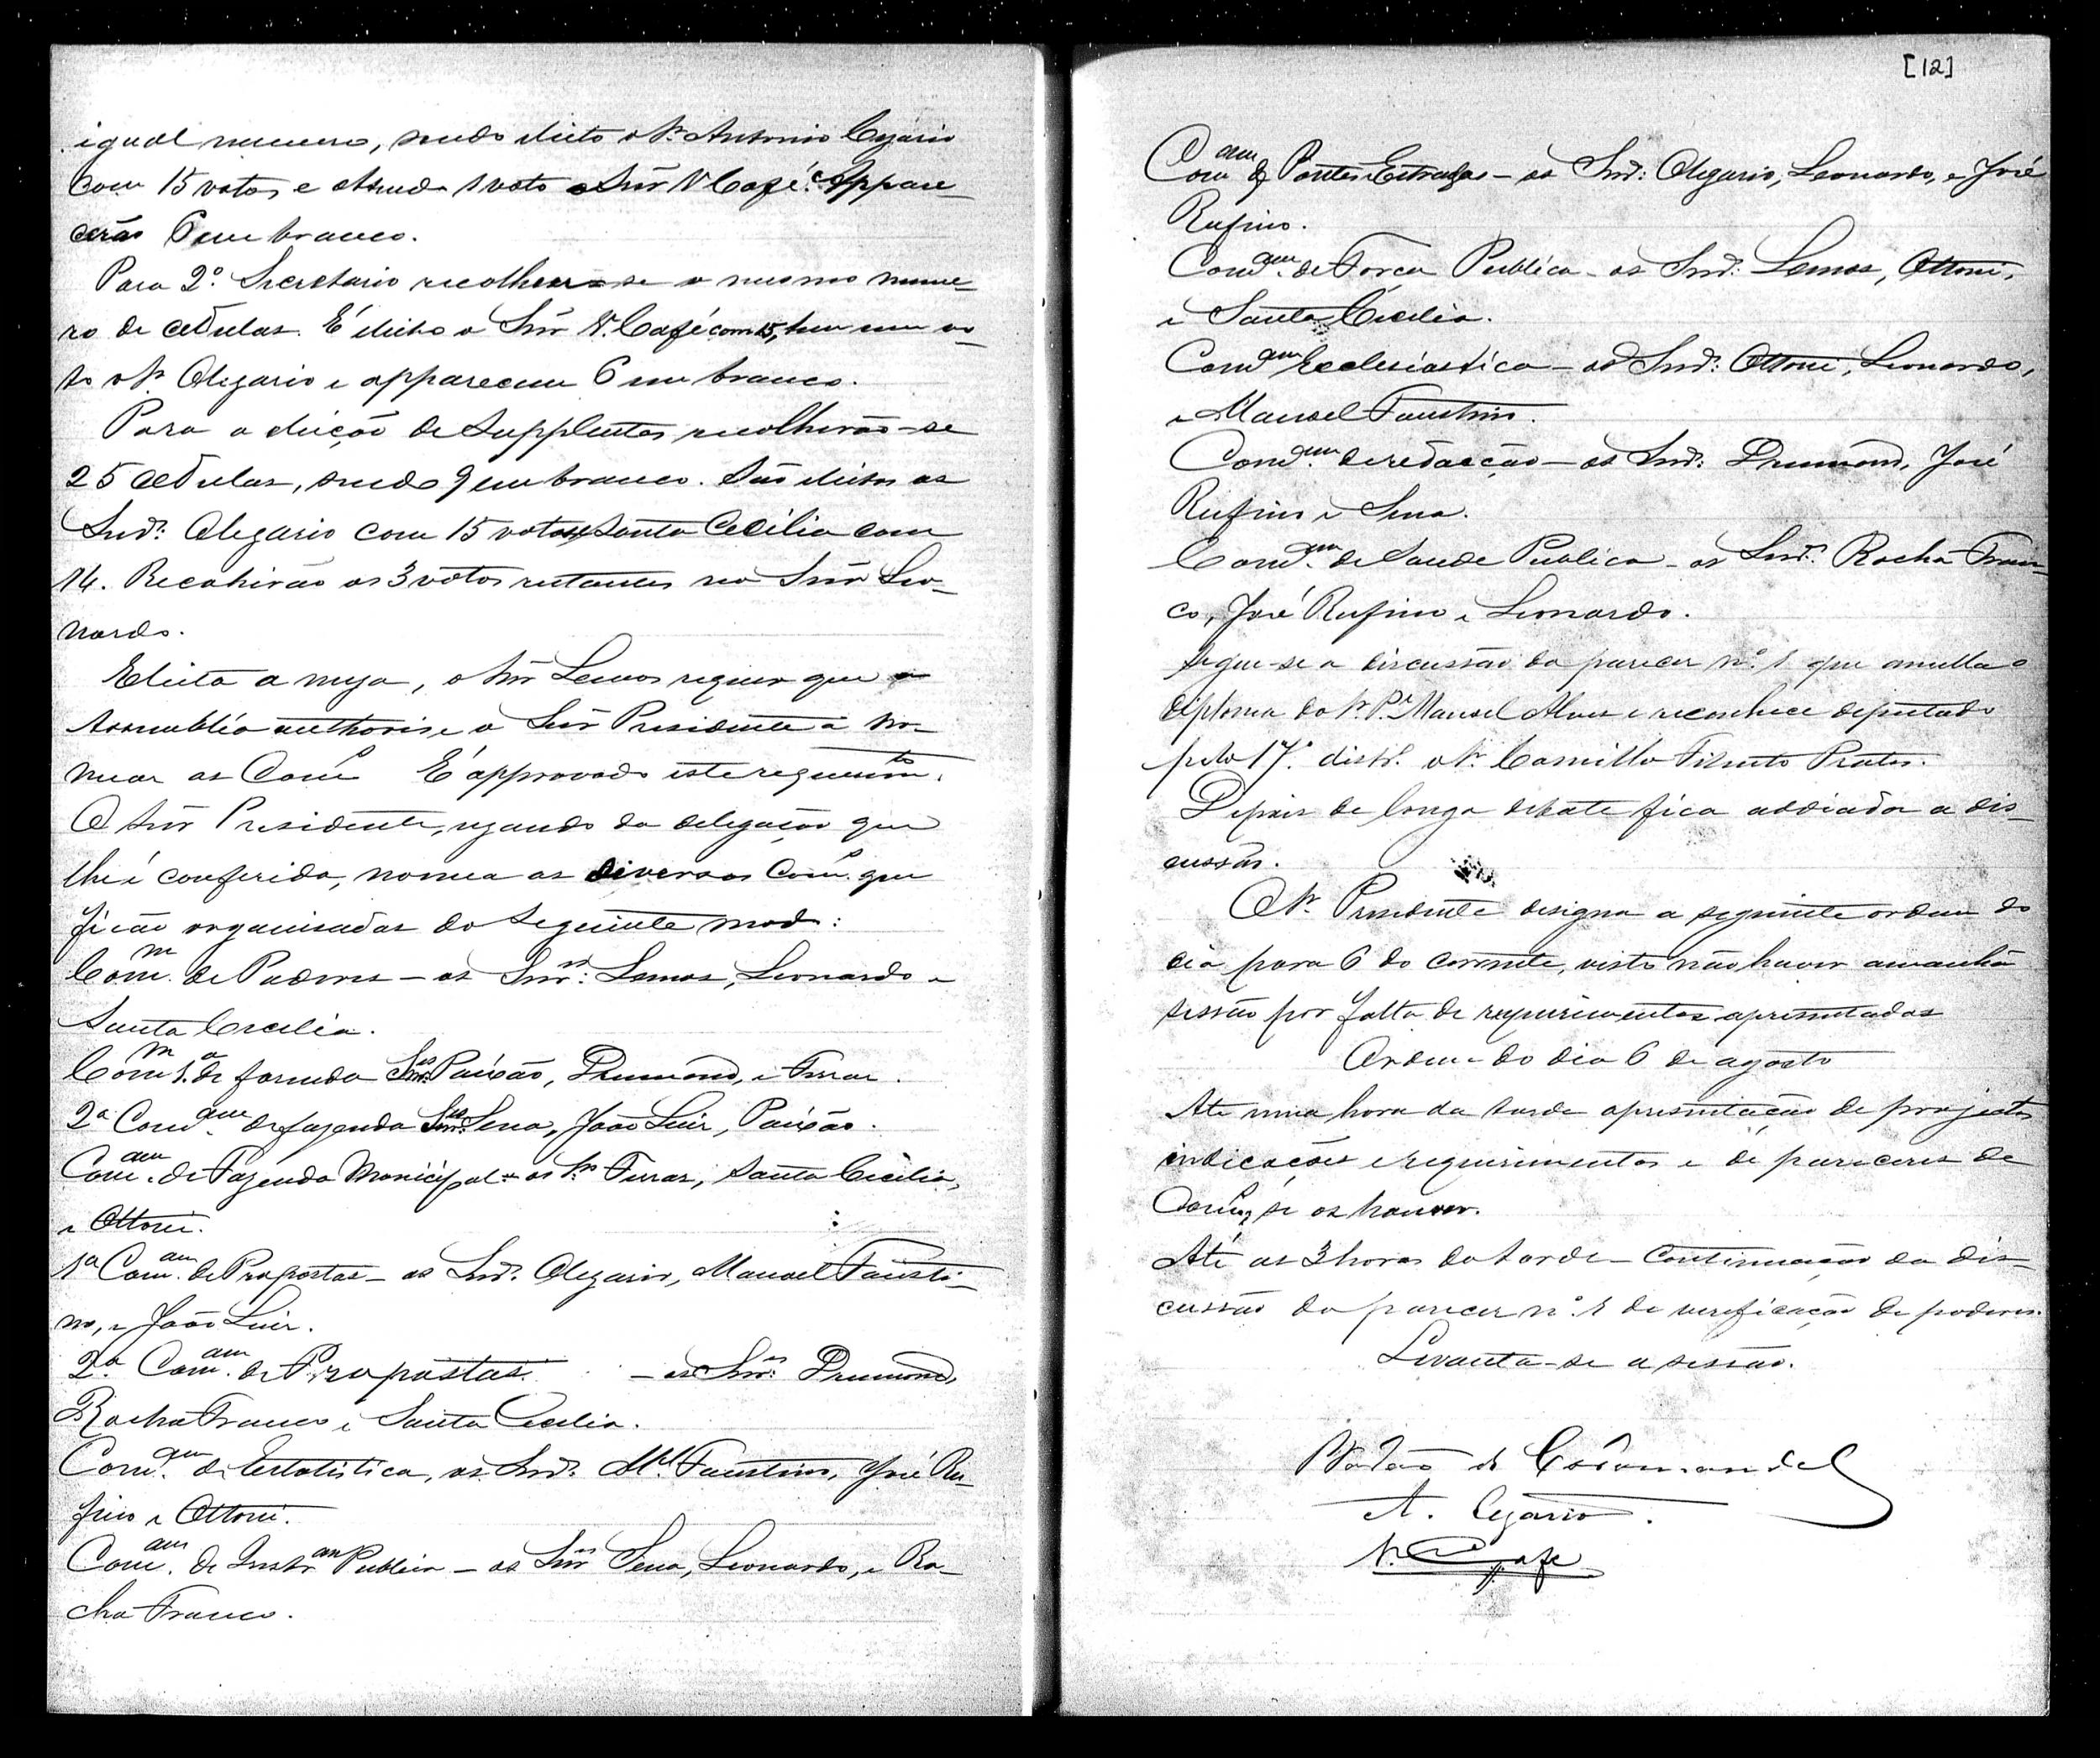 igual numero, sendo eleito o Sr. Antonio Cezario
com 15 votos e obtendo 1 voto o Snr V. Café. Appare-
cerão 6 em branco.
Para 2º. Secretario recolheu-se o mesmo nume-
ro de cedulas. É eleito o Snr V. Café com 15, tem um vo-
to o Sr. Olegario e apparecem 6 em branco.
Para a eleição de Supplentes recolherão-se
25 cedulas, sendo 9 em branco. São eleitos os
Snrs. Olegario com 15 votos e Santa Cecilia com
14. Recahirão os 3 votos restantes no Snr Leo-
nardo.
Eleita a meza, o Snr Lemos requer que a
Assembléa authorise o Snr Presidente a no-
mear as Comes É approvado este requerimto.
O Snr Presidente, uzando da delegação que
lhe é conferida, nomea as diversas Comes. que
ficão organisadas do seguinte modo:
Comm. de Poderes – os Snrs: Lemos, Leonardo e
Santa Cecilia.
Comm 1.a de fazenda Snrs. Paixão, Drumond, e Ferraz.
2a Comam. de fazenda Snrs. Sena, João Luiz, Paixão.
Comam. de Fazenda Municipal – os Srs Ferraz, Santa Cecilia,
e Ottoni.
1a Comam. de Propostas – os Snrs. Olegario, Manoel Fausti-
no, e João Luiz.
2.a Comam. de Propostas. – os Snrs. Drumond,
Rocha Franco e Santa Cecilia.
Comam. de Estatistica, os Snrs. Mel. Faustino, José Ru-
fino e Ottoni.
Comam. de Instram Publica – os Snrs Sena, Leonardo, e Ro-
cha Franco.
[12]
Comam de Pontes e Estradas – os Snrs: Olegario, Leonardo, e José
Rufino.
Comam. de Força Publica – os Snrs: Lemos, Ottoni,
e Santa Cecilia.
Comam Ecclesiastica – os Snrs: Ottoni, Leonardo,
e Manoel Faustino.
Comam. de redacção – os Snrs: Drumond, José
Rufino e Sena.
Comam. de Saude Publica – os Snrs. Rocha Fran-
co, José Rufino e Leonardo.
Segue-se a discussão do parecer nº. 1 que anulla o
diploma do Sr. Pe. Manoel Alves e reconhece deputado
pelo 17º. distr. o Sr. Camillo Filinto Prates.
Depois de longo debate fica addiada a dis-
cussão.
O Sr. Presidente designa a seguinte ordem do
dia para 6 do corrente, visto não haver amanhã
sessão por falta de requerimentos apresentados
Ordem do dia 6 de agosto
Até uma hora da tarde apresentação de projectos
indicações e requerimentos e de pareceres de
Comes, se os houver.
Até as 3 horas da tarde – Continuação da dis-
cussão do parecer nº. 1 de verificação de poderes.
Levanta-se a sessão.
Barão de Coromandel
A. Cezario.
V. Café